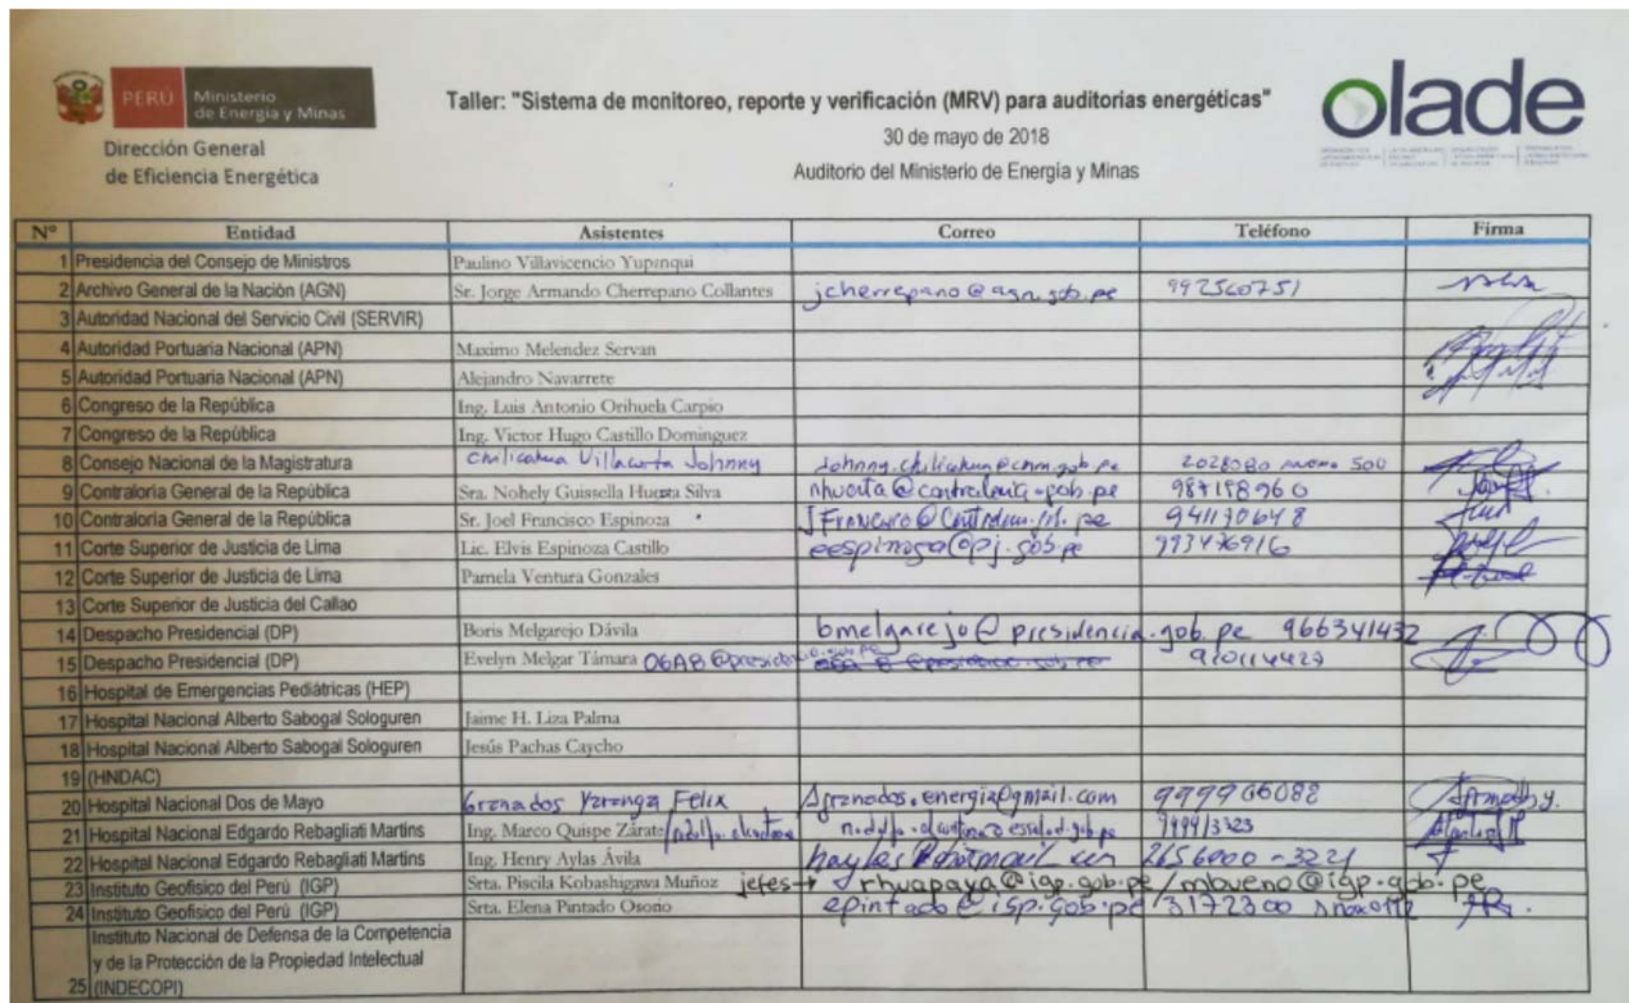 PERÚ Ministerio de Energía y Minas
Dirección General
de Eficiencia Energética
Taller: "Sistema de monitoreo, reporte y verificación (MRV) para auditorias energéticas"
30 de mayo de 2018
Auditorio del Ministerio de Energía y Minas
olade
Nº Entidad Asistentes Correo Teléfono Firma
1 Presidencia del Consejo de Ministros Paulino Villavicencio Yupanqui
2 Archivo General de la Nación (AGN) Sr. Jorge Armando Cherrepano Collantes jcherrepano@agn.gob.pe 992560751
3 Autoridad Nacional del Servicio Civil (SERVIR)
4 Autoridad Portuaria Nacional (APN) Maximo Melendez Servan
5 Autoridad Portuaria Nacional (APN) Alejandro Navarrete
6 Congreso de la República Ing. Luis Antonio Orihuela Carpio
7 Congreso de la República Ing. Victor Hugo Castillo Dominguez
8 Consejo Nacional de la Magistratura Villacorta Johnny 2028080 anexo 500
9 Contraloria General de la República Sra. Nohely Guissella Huerta Silva 987158960
10 Contraloria General de la República Sr. Joel Francisco Espinoza 941170648
11 Corte Superior de Justicia de Lima Lic. Elvis Espinoza Castillo eespinoza@pj.gob.pe 993476916
12 Corte Superior de Justicia de Lima Pamela Ventura Gonzales
13 Corte Superior de Justicia del Callao
14 Despacho Presidencial (DP) Boris Melgarejo Dávila bmelgarejo@presidencia.gob.pe 966341432
15 Despacho Presidencial (DP) Evelyn Melgar Támara
16 Hospital de Emergencias Pediátricas (HEP)
17 Hospital Nacional Alberto Sabogal Sologuren Jaime H. Liza Palma
18 Hospital Nacional Alberto Sabogal Sologuren Jesús Pachas Caycho
19 (HNDAC)
20 Hospital Nacional Dos de Mayo Granados Yaranga Felix Agranados.energia@gmail.com 999906088
21 Hospital Nacional Edgardo Rebagliati Martins Ing. Marco Quispe Zárate
22 Hospital Nacional Edgardo Rebagliati Martins Ing. Henry Aylas Ávila
23 Instituto Geofisico del Perú (IGP) Srta. Piscila Kobashigawa Muñoz jefes → rhuapaya@igp.gob.pe / mbueno@igp.gob.pe
24 Instituto Geofisico del Perú (IGP) Srta. Elena Pintado Osorio epintado@igp.gob.pe 3172300
Instituto Nacional de Defensa de la Competencia
y de la Protección de la Propiedad Intelectual
25 (INDECOPI)